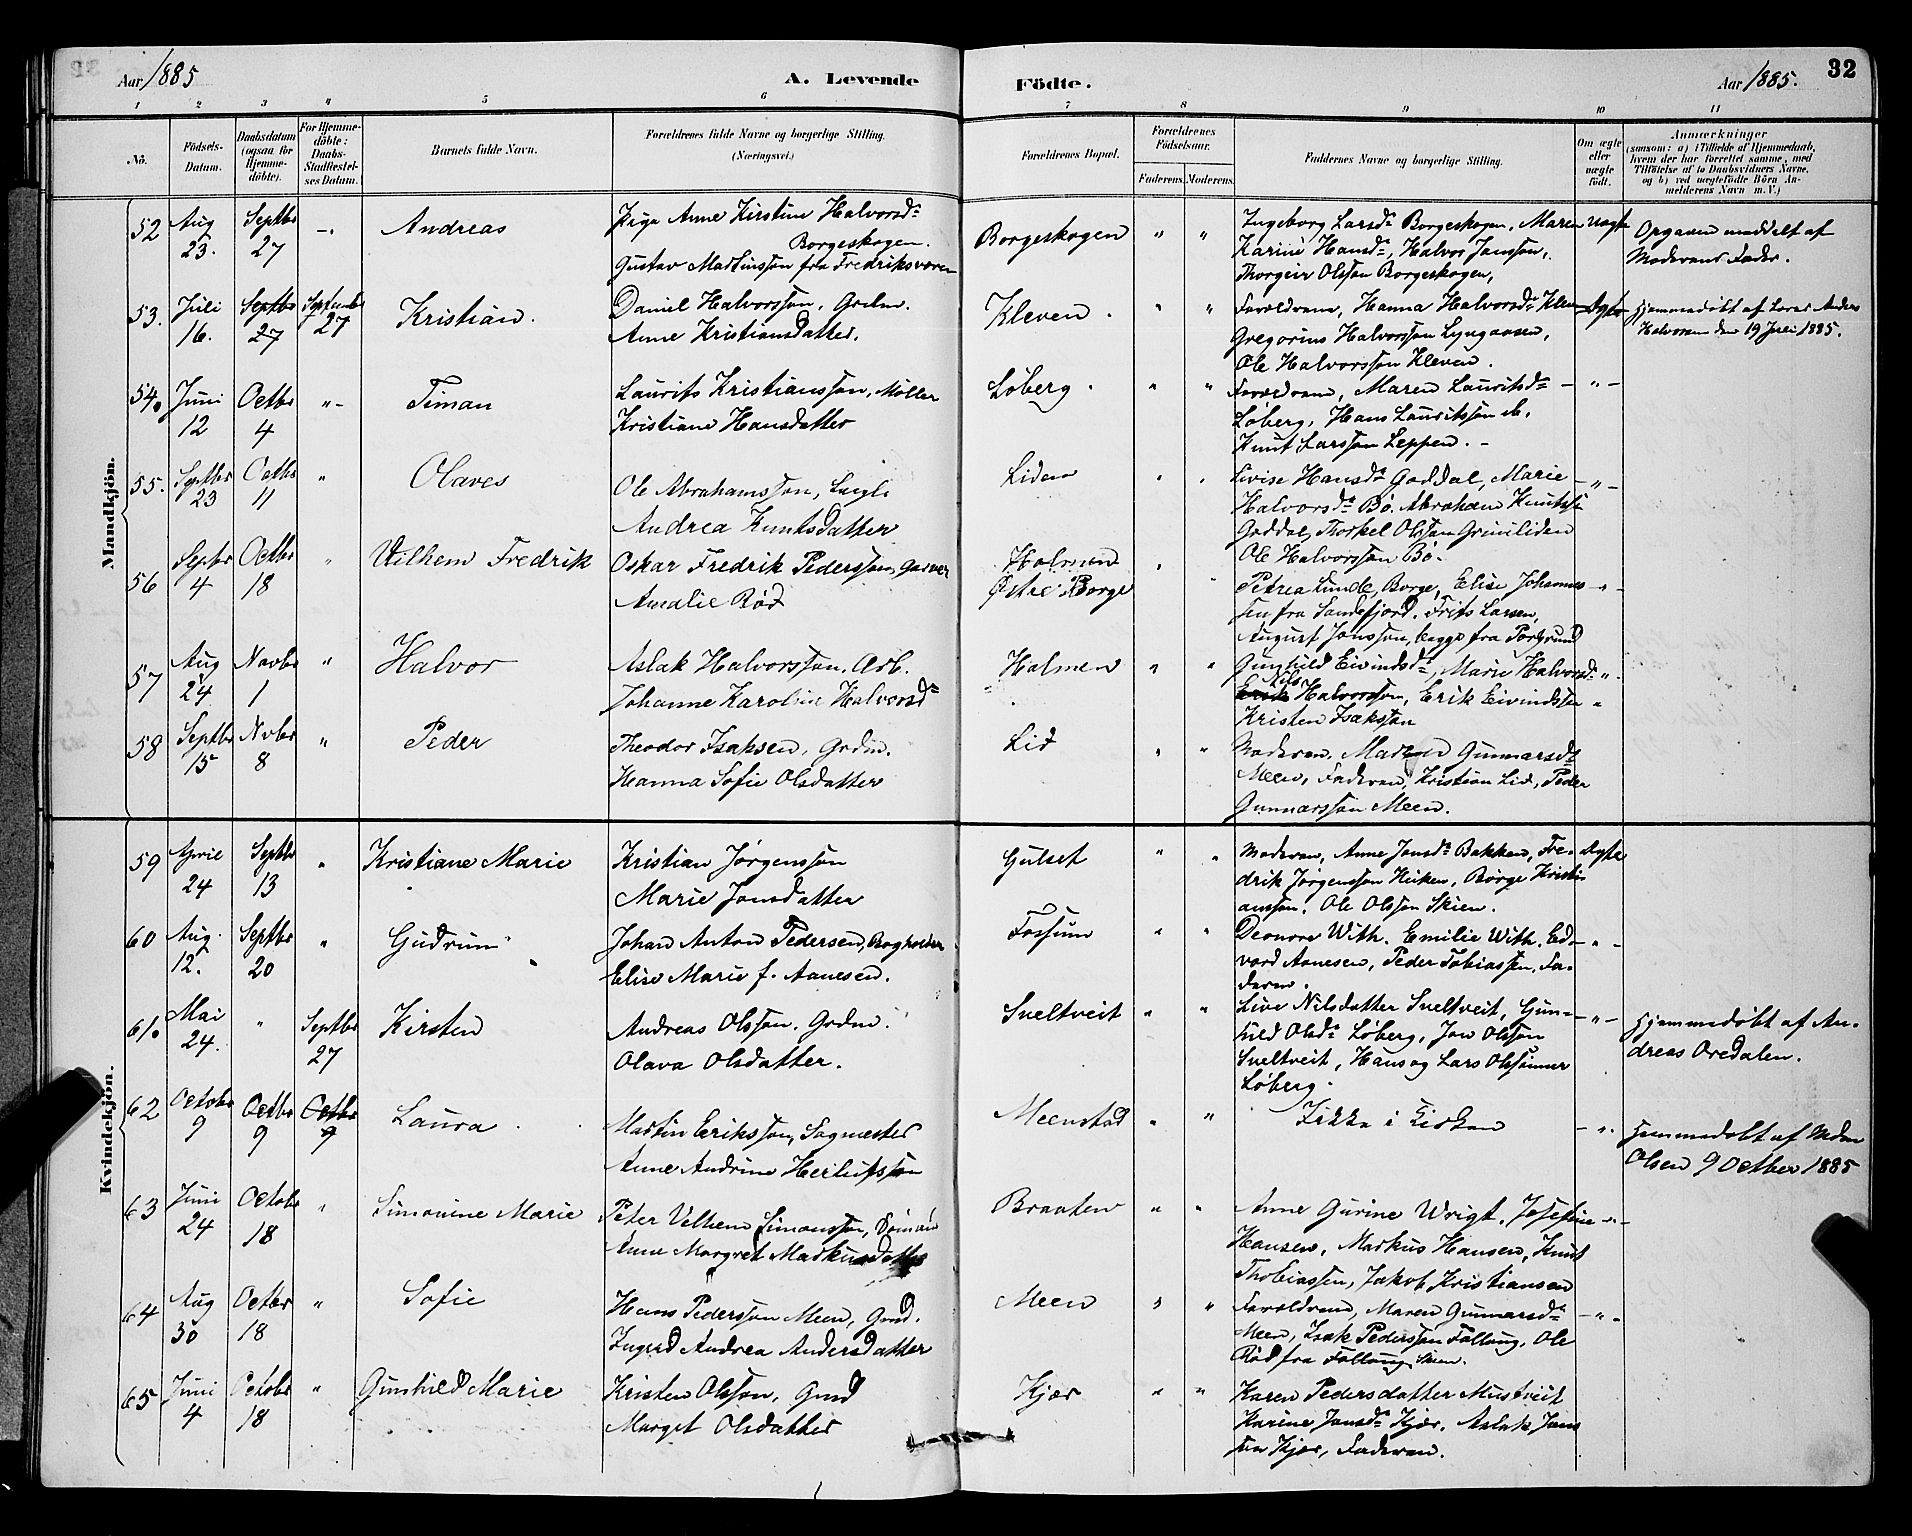 Aar 1885
A. Levende
Födte.
Aar 1885.
32
1 2 3 4 5 6 7 8 9 10 11
No.
Födsels-Datum.
Daabsdatum (ogsaa for Hjemme-döbte).
For Hjemme-döbte: Daabs-Stadfæstel-ses Datum.
Barnets fulde Navn.
Forældrenes fulde Navne og borgerlige Stilling.
(Næringsvei.)
Forældrenes Bopæl.
Forældrenes Födselsaar.
Faderens. Moderens.
Faddernes Navne og borgerlige Stilling.
Om ægte eller uægte födt.
Anmærkninger
(saasom: a) i Tilfælde af Hjemmedaab,
hvem der har forrettet samme, med
Tilföielse af to Daabsvidners Navne,
og b) ved uægtefödte Börn An-
melderens Navn m. V.)
Mandkjön.
52 Aug 23. Septbr 27 -„ Andreas
Pige Anne Kirstine Halvorsd.
Borgeskogen.
Gustav Martinsson fra Fredriksværn
Borgeskogen „ „
Ingeborg Larsd. Borgeskogen, Maren
Karine Hansd., Halvor Jansson,
Thorgeir Olsson Borgeskogen,
Uægte
Opgaven meddelt af
Moderens Fader.
53. Juli 16. Septbr 27 September 27 Kristian.
Daniel Halvorsson, Grdm.
Anne Kristiansdatter.
Kleven. „ „
Forældrene, Hanna Halvorsd. Kleven
Gregorius Halvorsson Lyngaasen,
Ole Halvorsson Kleven.
Ægte
Hjemmedøbt af Anders
Halvorsen den 19 Juli 1885.
54. Juni 12 Octbr 4 „- Timan
Laurits Kristiansson, Møller
Kristiane Hansdatter
Løberg. „ „
Forældrene, Maren Lauritsd.
Løberg, Hans Lauritsson ib.
Knut Larsson Leppen. -
- „ -
55. Septbr 23 Octbr 11 „ Olaves
Ole Abrahamsson,
Andrea Knutsdatter
Liden „ „
Livise Hansd. Goddal, Marie
Halvorsd. Bø. Abraham Knutss.
Goddal, Thorkel Olsson Griniliden
Ole Halvorsson Bø.
- „ -
56 Septbr 4 Octbr 18 „ Vilhem Fredrik
Oskar Fredrik Pedersson, Garver
Amalie Rød
Holmen
Østre Borge
Petrea Lunde, Borge, Elise Johannes
sen fra Sandefjord. Frits Larsen,
August Jansson, begge fra Porsgrund
- „ -
57 Aug 24 Novbr 1 „ Halvor
Aslak Halvorsson. Arb.
Johanne Karoline Halvorsd.
Holmen „ „
Gunhild Eivindsd., Marie Halvorsd.
Nils
Erik Halvorsson, Erik Eivindssen
Kristen Isaksson
„
58 Septbr 15 Novbr 8 „ Peder
Theodor Isaksen, Grdm.
Hanna Sofie Olsdatter
Lid „ „
Moderen, Maren Gunnarsdt.
Meen, Faderen, Kristian Lid, Peder
Gunnarsson Meen.
Kvindekjön.
59 April 24 Septbr 13 „ Kristiane Marie
Kristian Jørgensson
Marie Jonsdatter
Gulset „ „
Moderen, Anne Jonsd. Bakken, Fre-
drik Jørgensson Heiken, Børge Kristi-
ansson. Ole Olsson Skien.
Ægte
60 Aug. 12. Septbr 20 „ Gudrun
Johan Anton Pedersen, Bogholder
Elise Marie f. Aanesen.
Fossum „ „
Deonore With. Emilie With. Ed-
vard Aanesen, Peder Tobiassen, Fa-
deren.
- „ -
61. Mai 24. „ Septbr 27 Kirsten
Andreas Olsson. Grdm.
Olava Olsdatter.
Sneltveit „ „
Live Nilsdatter Sneltveit, Gun-
hild Olsd. Løberg, Jon Olsson
Sneltveit, Hans og Lars Olssønner
Løberg.
- „ -
Hjemmedøbt af An-
dreas Oredalen.
62 Octobr 9 Octbr 9 Octbr 9 Laura
Martin Eriksson, Sagmester
Anne Andrine Herlufsson
Meenstad „ „
Ikke i Kirken
- „ -
Hjemmedøbt af
Olsen 9 October 1885
63 Juni 24 Octobr 18 „ Simonine Marie
Peter Velhem Simonsson, Sømand
Anne Margret Markusdatter
Braaten „ „
Anne Gurine Wrigt, Josefine
Hansen, Markus Hansen, Knut
Thobiassen, Jakob Kristiansen
- „ -
64 Aug 30 Octbr 18 „ Sofie
Hans Pedersson Meen, Grd.
Ingerd Andrea Andersdatter
Meen „ „
Forældrene, Maren Gunnarsd.
Meen, Isak Pedersson Follaug, Ole
Rød fra Follaug Skien.
- „ -
65 Juni 4 Octobr 18 „ Gunhild Marie
Kristen Olsson, Grd
Marget Olsdatter
Kjær „ „
Karen Pedersdatter Mustveit
Karine Jonsd. Kjær, Aslak Jons
son Kjær, Faderen.